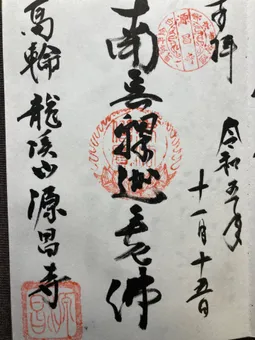 奉拝
令和五年
十一月十五日
南無釋迦牟尼佛
高輪 龍溪山 源昌寺